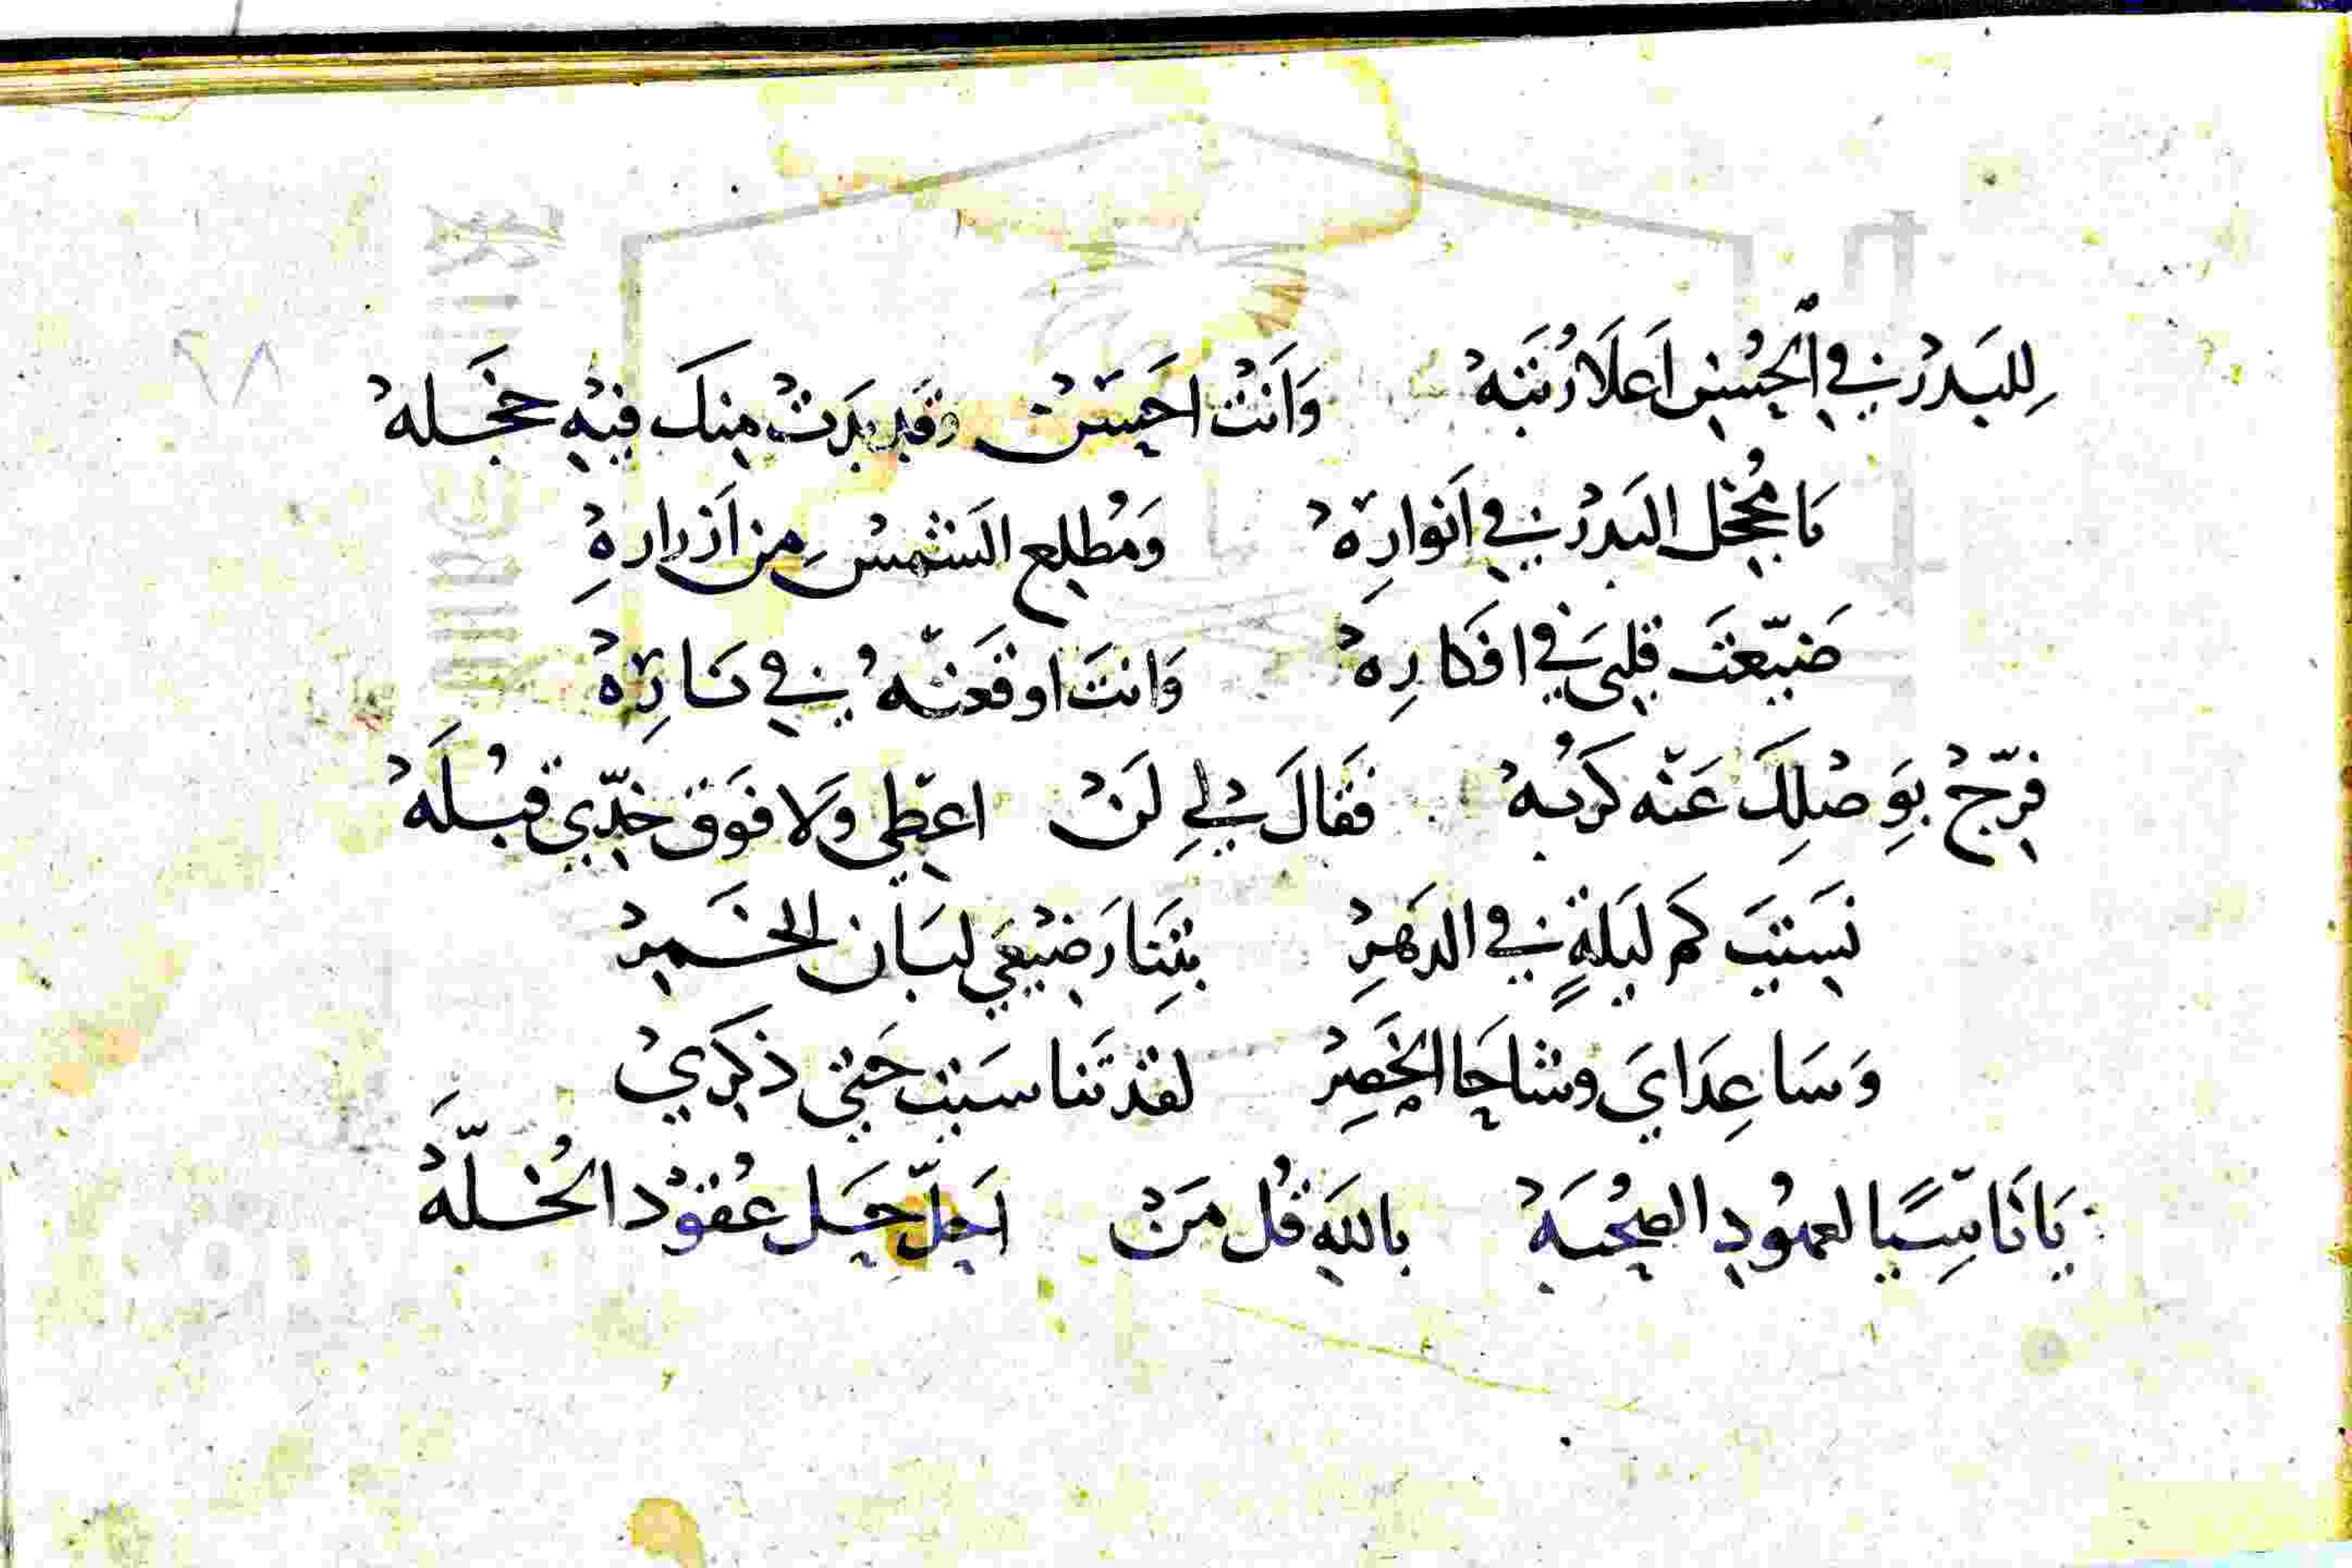 لِلبَدرْ فِي الحُسنِ اَعلَا رُتبَهْ وَاَنتْ احَسَنْ وقَد بدَتْ مِنكَ فيْهِ خجَله
يَا مُخجل البَدرْ فِي اَنوارِهْ وَمُطلِع الشَمسْ مِن اَزرارِهْ
ضَيّعتَ قلبىَ فِي افكارِهْ وَانتَ اوقَعتَهُ فِي نَارِهْ
فرِّجْ بوَصْلِكَ عَنْه كُرَبهْ فَقَالَ لِي لَنْ اعطِي وَلا فَوَق خدِّي قُبْلَهْ
نَسيتَ كم لَيلةٍ فِي الدهَرِ بتنَا رَضيْعَي لبَان الخَمرْ
وَسَاعِدَايَ وشاحَا الخَصِرْ لقدْ تَناسَيتِ حَتى ذكرَيْ
يَا نَاسِيًا لعهُودِ الصُحبَهْ بالله قُل مَنْ اَحلّ حَل عُقوْد الخُلَّهْ